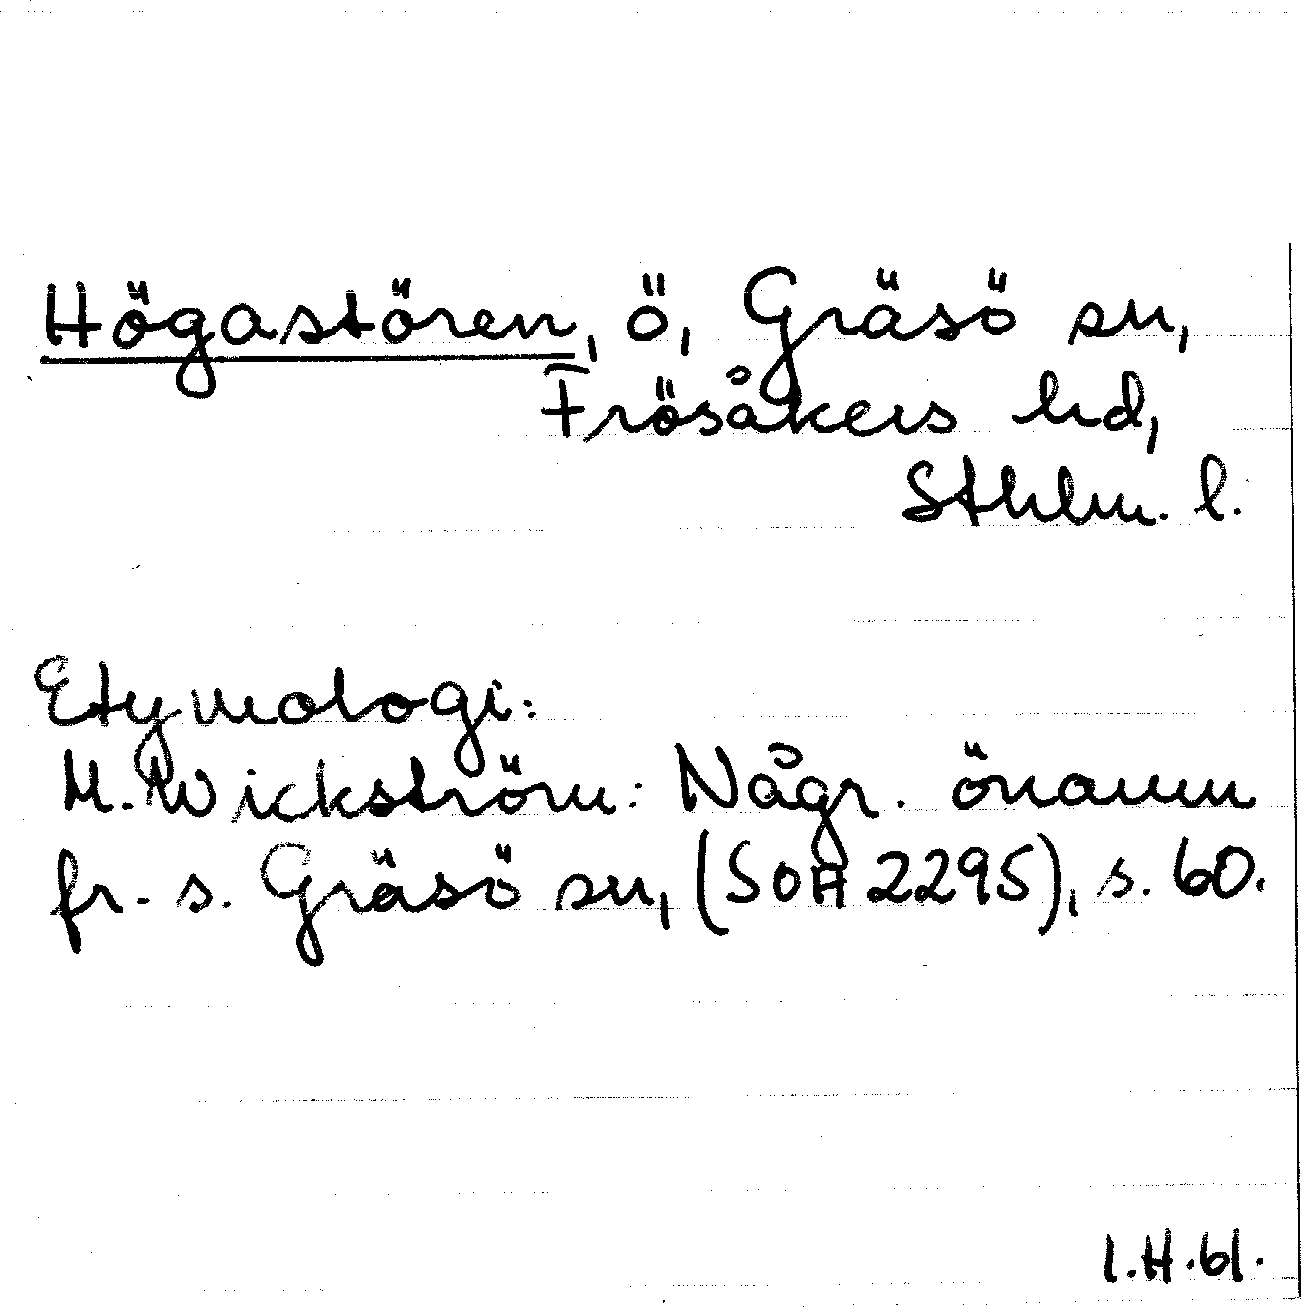 Högastören, ö, Gräsö sn,
Frösåkers hd,
Sthlm. l.
Etymologi:
M. Wickström: Någr. önamn
fr. s. Gräsö sn, (SOA 2295), s. 60.
I.H.61.